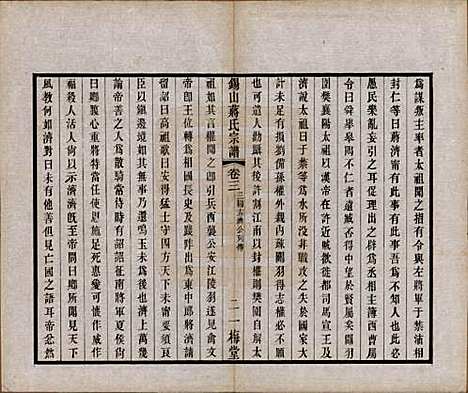 爲謀叛主率者太祖聞之指前令與左將軍于禁沛相
封仁等曰蔣濟甯有此事有此事吾爲不知人也此必
愚民樂亂妄引之耳促理出之辟爲丞相主簿西曹屬
令曰舜舉臯陶不仁者遠臧否得中望於賢屬矣關羽
圍樊襄陽太祖以漢帝在許近賊欲徙都司馬宣王及
濟說太祖曰于禁等爲水所沒非戰攻之失於國家大
計未足有損劉備孫權外親內疎關羽得志權必不願
也可遣人勸躡其後許割江南以封權則樊圍自解太
錫山蔣氏宗譜 卷三 公列傳 二 一梅堂
祖如其言權聞之即引兵西襲公安江陵羽遂見禽文
帝即王位轉爲相國長史及踐阼出爲東中郎將濟請
留詔曰高祖歌曰安得猛士守四方天下未甯要須良
臣以鎮邊境如其無事乃還鳴玉未爲後也濟上萬機
論帝善之入爲散騎常侍時有詔詔征南將軍夏侯尚
曰卿腹心重將特當任使恩施足死惠愛可懷作威作
福殺人活人尚以示濟濟既至帝問曰卿所聞見天下
風教何如濟對曰未有他善但見亡國之語耳帝忿然